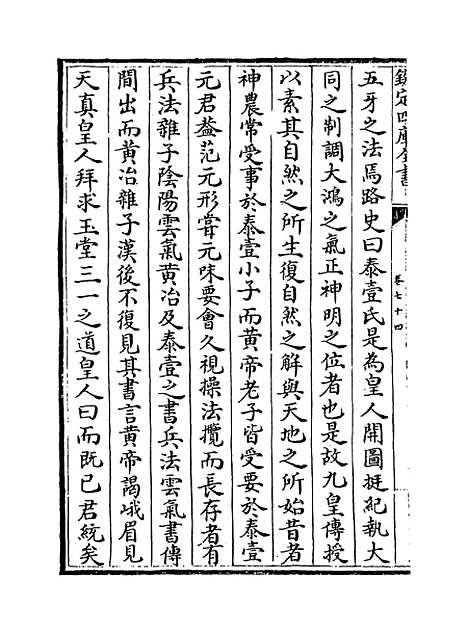 欽定四庫全書
卷七十四
五牙之法焉路史曰泰壹氏是為皇人開圖挺紀執大
同之制調大鴻之氣正神明之位者也是故九皇傳授
以素其自然之所生復自然之解與天地之所始昔者
神農常受事於泰壹小子而黄帝老子皆受要於泰壹
元君葢范元形嘗元味要會久視操法攬而長存者有
兵法雜子陰陽雲氣黄冶及泰壹之書兵法雲氣書傳
間出而黄冶雜子漢後不復見其書言黄帝謁峨眉見
天真皇人拜求玉堂三一之道皇人曰而既已君統矣